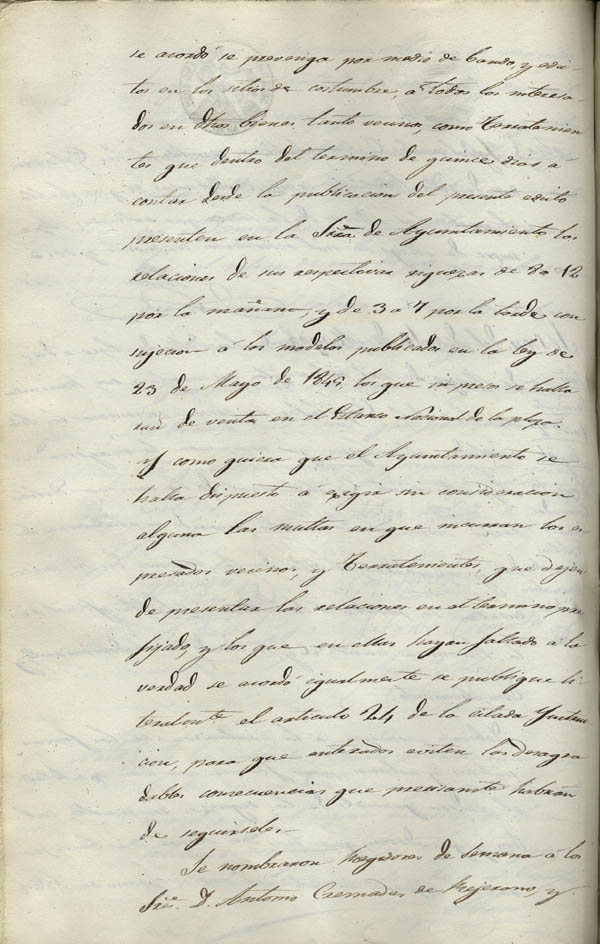 se acordó se prevenga por medio de bando, y edic-
tos en los sitios de costumbre, a todos los interesa-
dos en dhos bienes tanto vecinos, como Terratenien-
tes que dentro del termino de quince dias a
contar desde la publicacion del presente edicto
presenten en la Sria de Ayuntamiento las
relaciones de sus respectivas riquezas de 9 a 12
por la mañana, y de 3 a 7 por la tarde con
sujecion á los modelos publicados en la ley de
23 de Mayo de 1845, los que impresos se halla
ran de venta en el Estanco Nacional de la plaza.
Y como quiera que el Ayuntamiento se
halla dispuesto á exigir sin consideracion
alguna las multas en que incurran los es-
presados vecinos, y Terratenientes, que dejen
de presentar las relaciones en el termino pre
fijado, y los que en ellas hayan faltado á la
verdad se acordó igualmente se publique li
teralmente el articulo 24 de la citada Ynstruc
cion, para que enterados eviten las desagra
dables consecuencias que habrán
de seguirseles.-
Se nombraron Regidores de semana á los
Sres. D. Antonio Cremades de, y